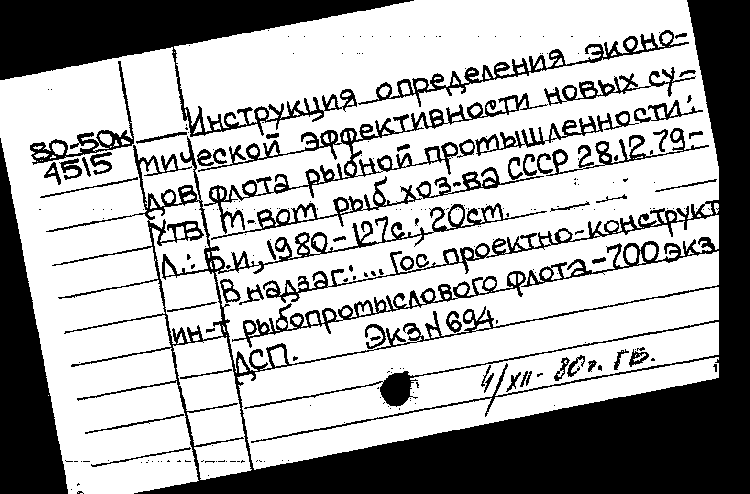 80-50к
4515
Инструкция определения эконо-
мической эффективности новых су-
дов флота рыбной промышленности:
Утв. М-вом рыб. хоз-ва СССР 28.12.79.-
Л.: Б.и., 1980.-127с.; 20см.
В надзаг.: ... Гос. проектно-конструкт
ин-т рыбопромыслового флота-700экз
ДСП. Экз.N694.
4/XII-80г. ГВ.